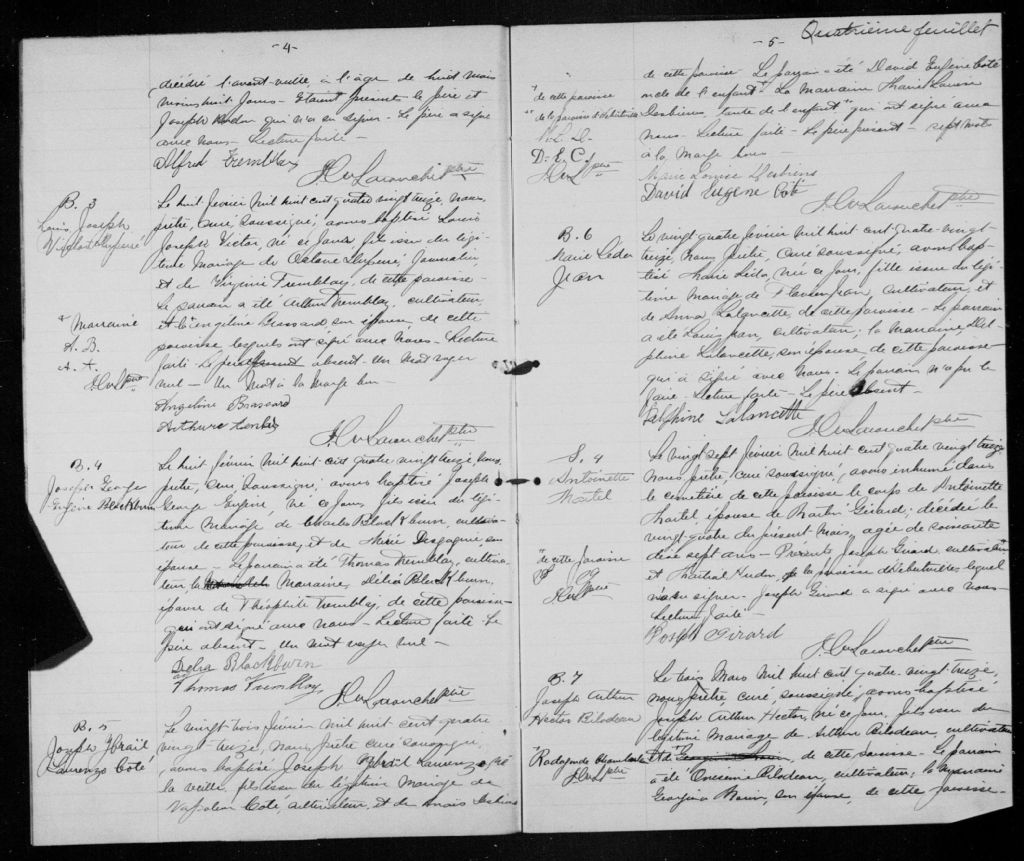 -4-
décédé l'avant-veille à l'âge de huit mois
moins huit jours - Etaient présents le père et
Joseph qui n'a su signer. Le père a signé
avec nous - Lecture faite -
Alfred Tremblay
J. C. Larouche ptre
B. 3
Louis Joseph
Le huit février mil huit cent quatre vingt treize, nous
prêtre, curé soussigné, avons baptisé Louis
Joseph Victor, né ce jour, fils issu du légi-
time Mariage de Octave, Journalier
et de Virginie Tremblay, de cette paroisse
Le parrain a été Arthur Tremblay, cultivateur,
+ Marraine
A. B.
A. T.
ptre
et Angéline Brassard, son épouse, de cette
paroisse lesquels ont signé avec nous - Lecture
faite - Le père absent - Un mot rayé
nul - Un Mot à la Marge bon -
Angéline Brassard
Arthur
J. C. Larouche ptre
B. 4
Joseph George
Eugène Blackburn
Le huit février mil huit cent quatre vingt treize, nous
prêtre, curé soussigné, avons baptisé Joseph
George Eugène, né ce jour, fils issu du légi-
time Mariage de Charles Blackburn, cultiva-
teur de cette paroisse, et de Marie Desgagné son
épouse - Le parrain a été Thomas Tremblay, cultiva-
teur, la Marraine, Délia Blackburn,
épouse de Théophile Tremblay, de cette paroisse
qui ont signé avec nous - Lecture faite - Le
père absent - Un mot rayé nul -
Delia Blackburn
Thomas Tremblay
J. C. Larouche ptre
B. 5
Joseph
Laurenzo Coté
Le vingt trois février mil huit cent quatre
vingt treize, nous, prêtre curé soussigné,
avons baptisé Joseph Laurenzo, né
la veille, fils issu du légitime Mariage de
Napoléon Coté, cultivateur, et de Marie Desbiens
-5-
Quatrième feuillet
de cette paroisse. Le parrain a été David Eugène Coté
oncle de l'enfant + La Marraine Marie Louise
Desbiens, tante de l'enfant " qui ont signé avec
nous - Lecture faite - Le père présent - sept mots
à la Marge bons -
+ de cette paroisse
" de la paroisse d'Hébertville
M. L. D.
D. E. C.
ptre
Marie Louise Desbiens
David Eugène Coté
J. C. Larouche ptre
B. 6
Marie Léda
Jean
Le vingt quatre février mil huit cent quatre-vingt-
treize, Nous, prêtre, curé soussigné, avons bap-
tisé Marie Léda, née ce jour, fille issue du légi-
time Mariage de Jean, cultivateur, et
de Anna Lalancette, de cette paroisse - Le parrain
a été Louis Jean, cultivateur; la Marraine, Del-
phine Lalancette, son épouse, de cette paroisse
qui a signé avec nous - Le parrain n'a pu le
faire - Lecture faite - Le père absent -
Delphine Lalancette
J. C. Larouche ptre
S. 4
Antoinette
Martel
Le vingt sept février mil huit cent quatre vingt treize
Nous prêtre, curé soussigné, avons inhumé dans
le cimetière de cette paroisse le corps de Antoinette
Martel, épouse de Martin Girard, décédée le
vingt quatre du présent mois, agée de soixante
deux sept ans - Présents Joseph Girard, cultivateur "
et Martial Hudon, de la paroisse d'Hébertville, lequel
n'a su signer - Joseph Girard a signé avec nous -
Lecture faite -
" de cette paroisse
ptre
Joseph Girard
J. C. Larouche ptre
B. 7
Joseph Arthur
Hector Bilodeau
Le trois Mars mil huit cent quatre-vingt treize,
nous prêtre, curé soussigné, avons baptisé
Joseph Arthur Hector, né ce jour, fils issu du
légitime Mariage de Arthur Bilodeau, cultivateur
" Radegonde
ptre
et de " de cette paroisse - Le parrain
a été Onésime Bilodeau, cultivateur; la Marraine
Georgina Morin, son épouse, de cette paroisse -